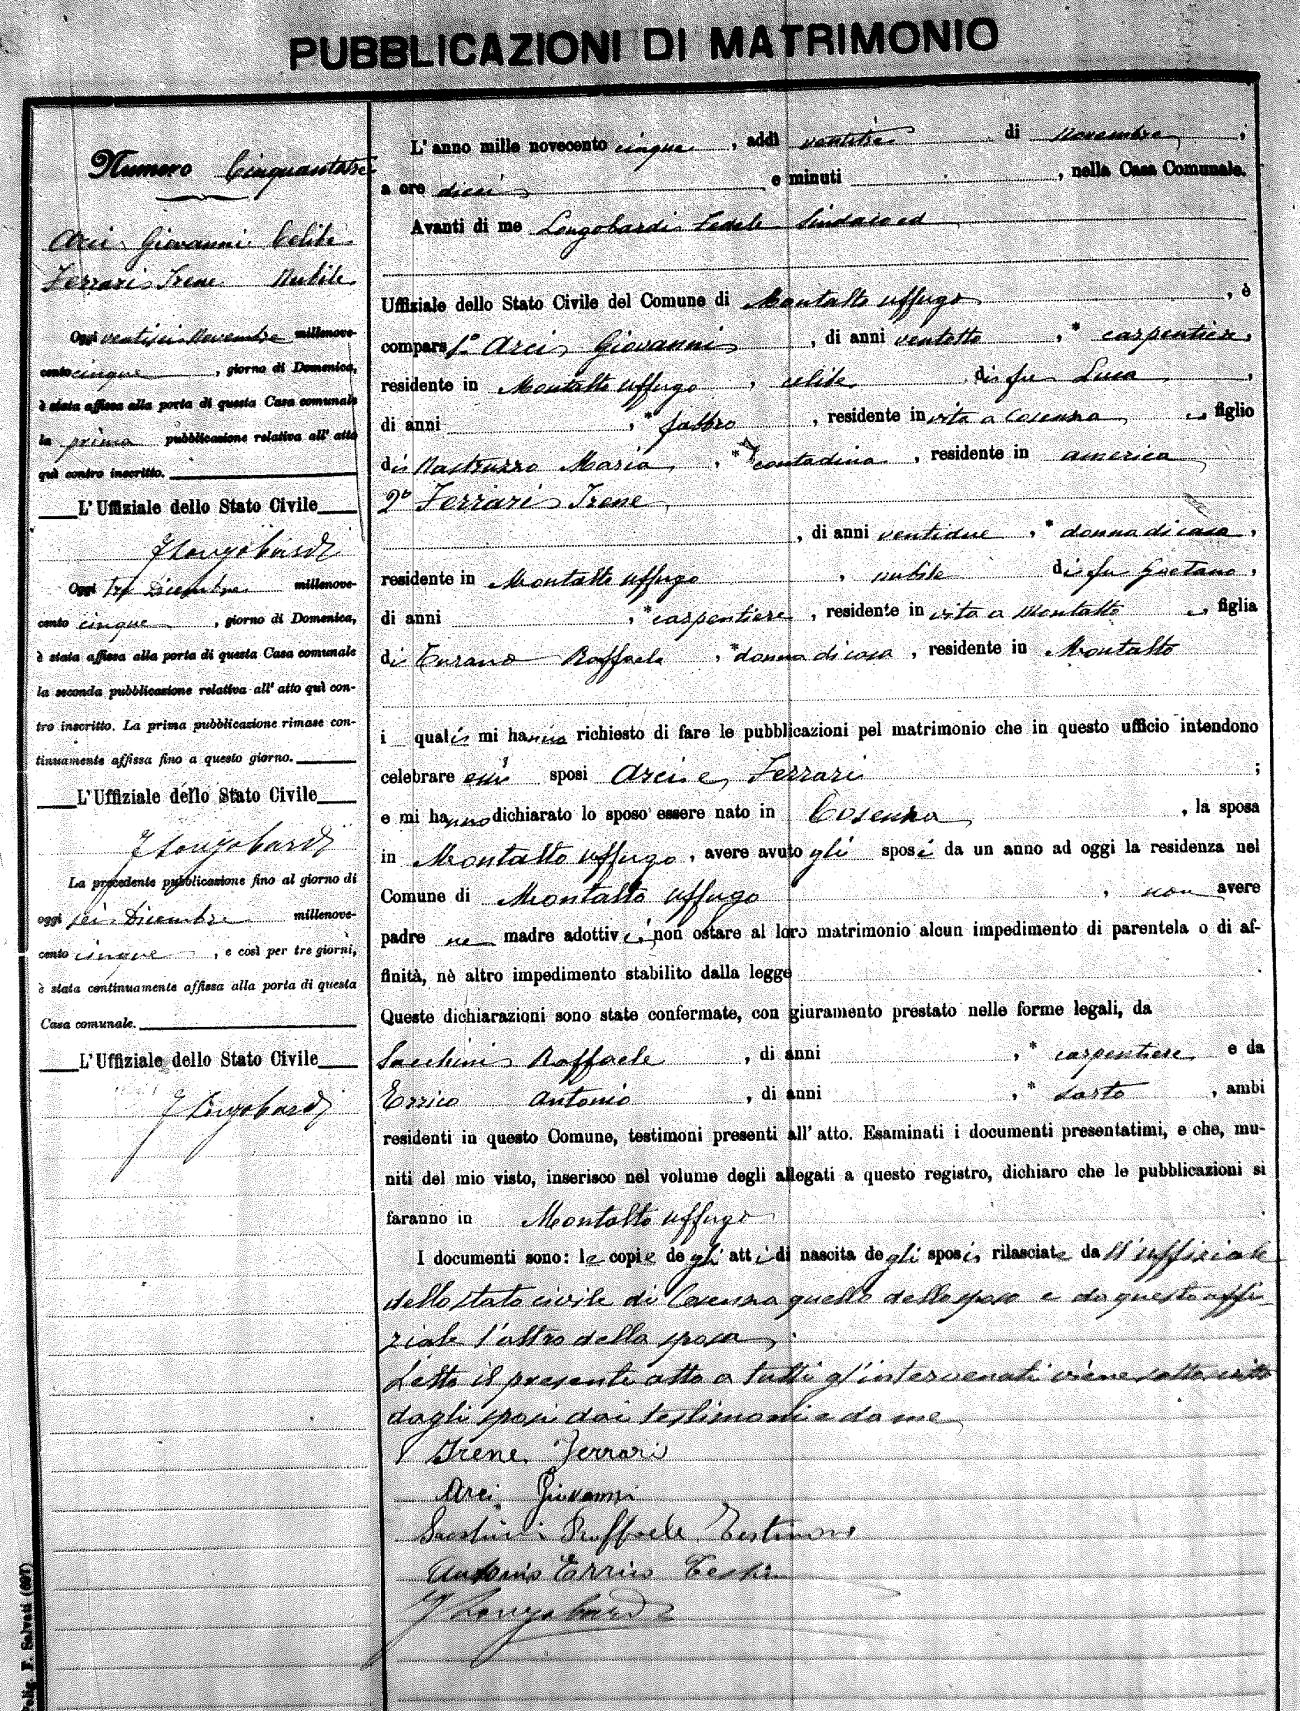 PUBBLICAZIONI DI MATRIMONIO
Numero Cinquantatre
Arci Giovanni Celibe
Ferrari Irene Nubile
Oggi ventisei Novembre millenove-
cento cinque, giorno di Domenica,
è stata affissa alla porta di questa Casa comunale
la prima pubblicazione relativa all' atto
quì contro inscritto.
L'Uffiziale dello Stato Civile
F Longobardi
Oggi tre Dicembre millenove-
cento cinque, giorno di Domenica,
è stata affissa alla porta di questa Casa comunale
la seconda pubblicazione relativa all' atto quì con-
tro inscritto. La prima pubblicazione rimase con-
tinuamente affissa fino a questo giorno.
L'Uffiziale dello Stato Civile
F Longobardi
La precedente pubblicazione fino al giorno di
oggi sei Dicembre millenove-
cento cinque, e così per tre giorni,
è stata continuamente affissa alla porta di questa
Casa comunale.
L'Uffiziale dello Stato Civile
F Longobardi
L' anno mille novecento cinque, addì ventitre di Novembre,
a ore dieci e minuti , nella Casa Comunale.
Avanti di me Longobardi Fedele Sindaco ed
Uffiziale dello Stato Civile del Comune di Montalto Uffugo, è
compars 1° Arci Giovanni, di anni ventotto, * carpentiere,
residente in Montalto Uffugo, celibe, di fu Luca,
di anni , * fabbro, residente in vita a Cosenza, figlio
di Nastruzzo Maria, * contadina, residente in America
2° Ferrari Irene
, di anni ventidue, * donna di casa,
residente in Montalto Uffugo, nubile di fu Gaetano,
di anni , * carpentiere, residente in vita a Montalto, figlia
di Turano Raffaela, * donna di casa, residente in Montalto
i quali mi hanno richiesto di fare le pubblicazioni pel matrimonio che in questo ufficio intendono
celebrare essi sposi Arci e Ferrari ;
e mi hanno dichiarato lo sposo essere nato in Cosenza, la sposa
in Montalto Uffugo, avere avuto gli sposi da un anno ad oggi la residenza nel
Comune di Montalto Uffugo, non avere
padre ne madre adottivi, non ostare al loro matrimonio alcun impedimento di parentela o di af-
finità, nè altro impedimento stabilito dalla legge
Queste dichiarazioni sono state confermate, con giuramento prestato nelle forme legali, da
Sacchini Raffaele, di anni , * carpentiere e da
Errico Antonio, di anni , * sarto, ambi
residenti in questo Comune, testimoni presenti all' atto. Esaminati i documenti presentatimi, e che, mu-
niti del mio visto, inserisco nel volume degli allegati a questo registro, dichiaro che le pubblicazioni si
faranno in Montalto Uffugo
I documenti sono: le copie degli atti di nascita degli sposi rilasciate dall'uffiziale
dello stato civile di Cosenza quello dello sposo e da questo uffi-
ziale l'altro della sposa
Letto il presente atto a tutti gl'intervenuti viene sottoscritto
dagli sposi dai testimoni e da me
Irene Ferrari
Arci Giovanni
Sacchini Raffaele Testimone
Antonio Errico
F Longobardi
Polig. F. Salvati (697)